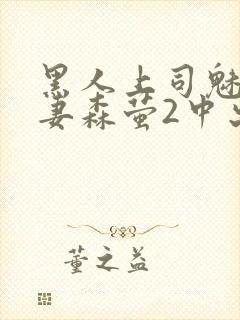 黑人上司魅
妻森萤2中
董之益